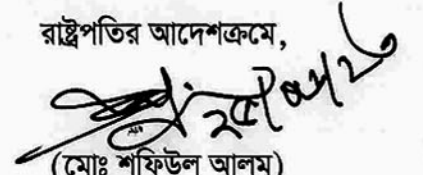 রাষ্ট্রপতির আদেশক্রমে,
(মোঃ শফিউল আলম)